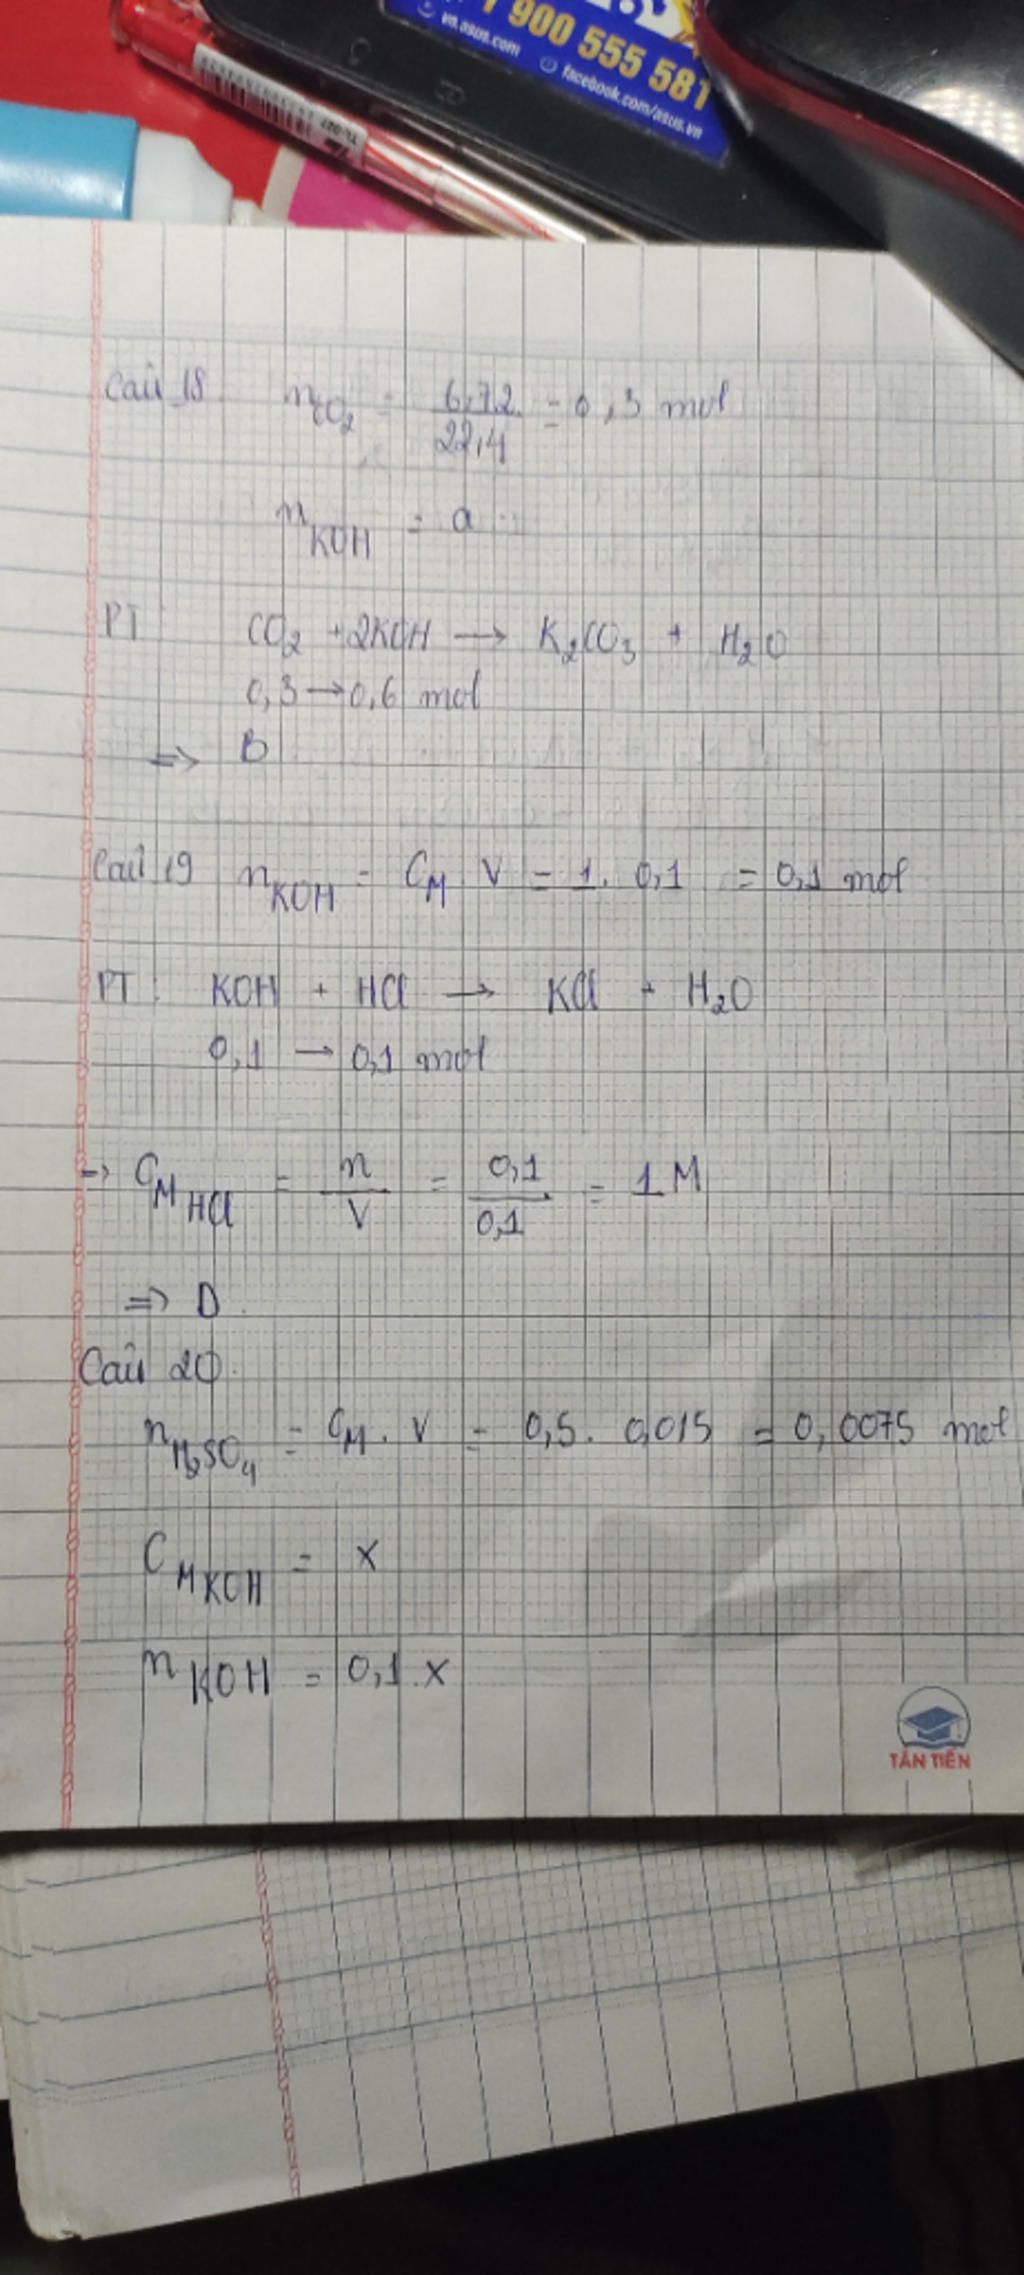 1 900 555 581
vn.asus.com
facebook.com/asus.vn
Câu 18 nCO₂ = 6,72 / 22,4 = 0,3 mol
nKOH = a
PT CO₂ + 2KOH → K₂CO₃ + H₂O
0,3 → 0,6 mol
=> B
Câu 19 nKOH = CM . V = 1. 0,1 = 0,1 mol
PT: KOH + HCl → KCl + H₂O
0,1 → 0,1 mol
=> CM HCl = n / V = 0,1 / 0,1 = 1 M
=> D.
Câu 20.
nH₂SO₄ = CM . V = 0,5. 0,015 = 0,0075 mol
CM KOH = x
nKOH = 0,1.x
TÂN TIẾN